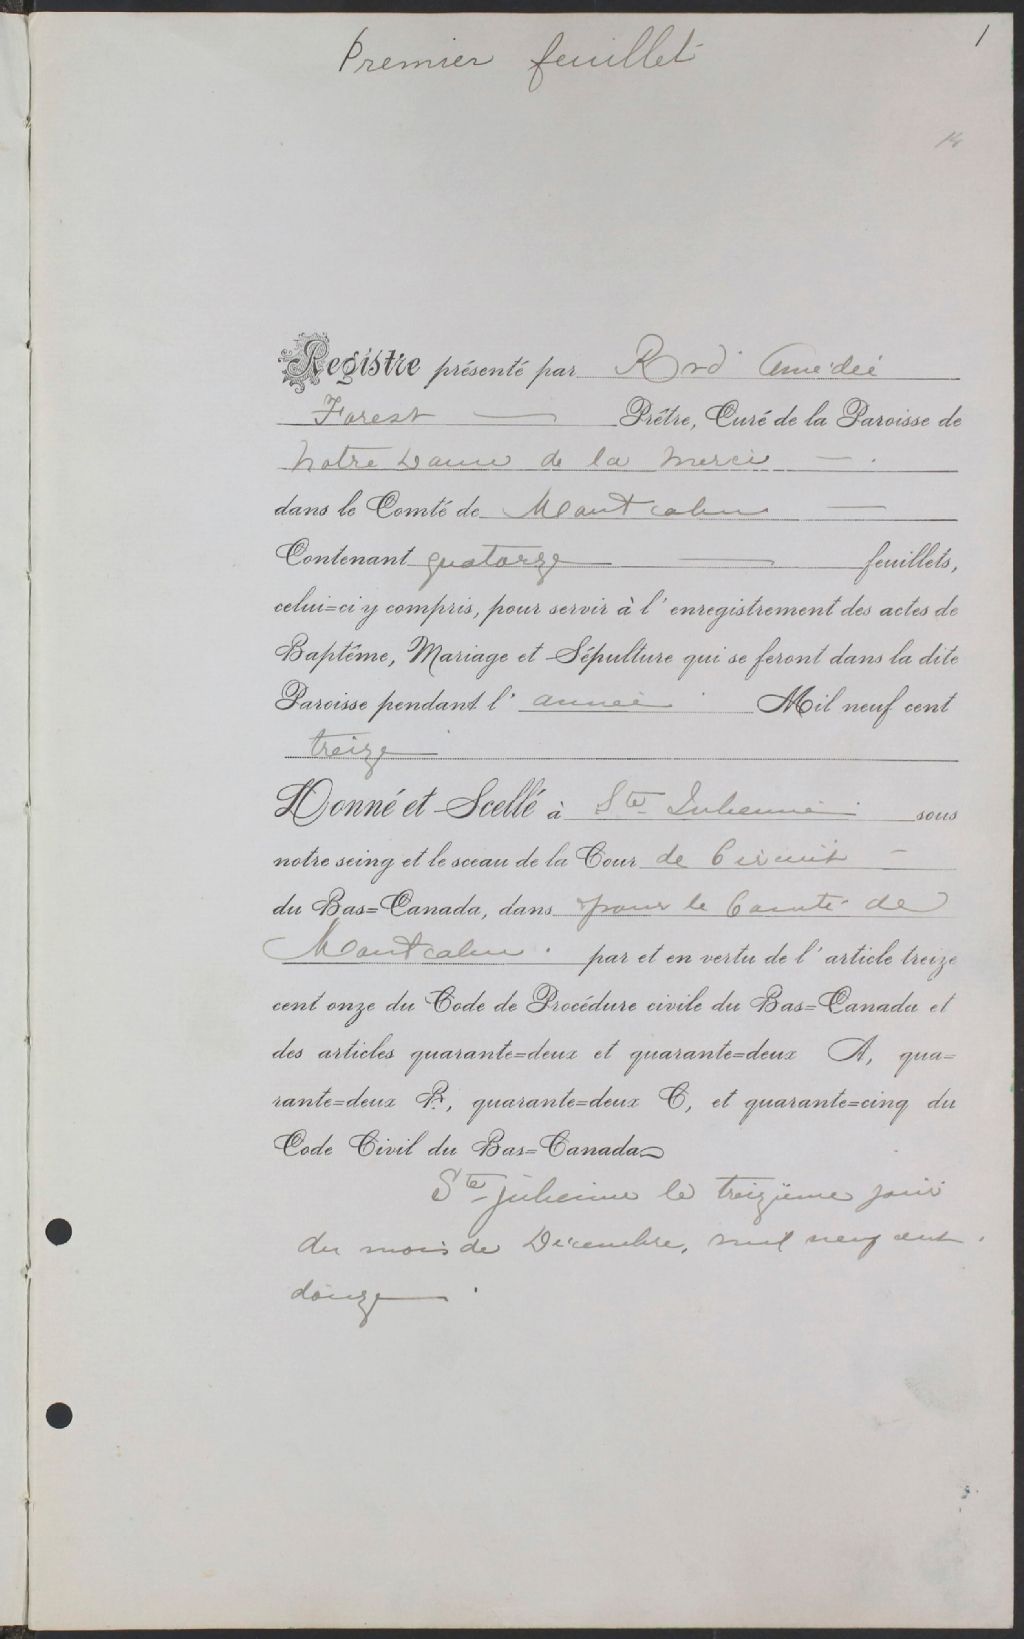 Premier feuillet
1
14
Registre présenté par Rvd Amédée
Forest Prêtre, Curé de la Paroisse de
Notre Dame de la Merci
dans le Comté de Montcalm
Contenant quatorze feuillets,
celui=ci y compris, pour servir à l'enregistrement des actes de
Baptême, Mariage et Sépulture qui se feront dans la dite
Paroisse pendant l'année Mil neuf cent
treize
Donné et Scellé à Ste Julienne sous
notre seing et le sceau de la Cour de Circuit
du Bas=Canada, dans pour le Comté de
Montcalm. par et en vertu de l'article treize
cent onze du Code de Procédure civile du Bas=Canada et
des articles quarante=deux et quarante=deux A, qua=
rante=deux B, quarante=deux C, et quarante=cinq du
Code Civil du Bas=Canada
Ste Julienne le treizième jour
du mois de Décembre, mil neuf cent
douze.